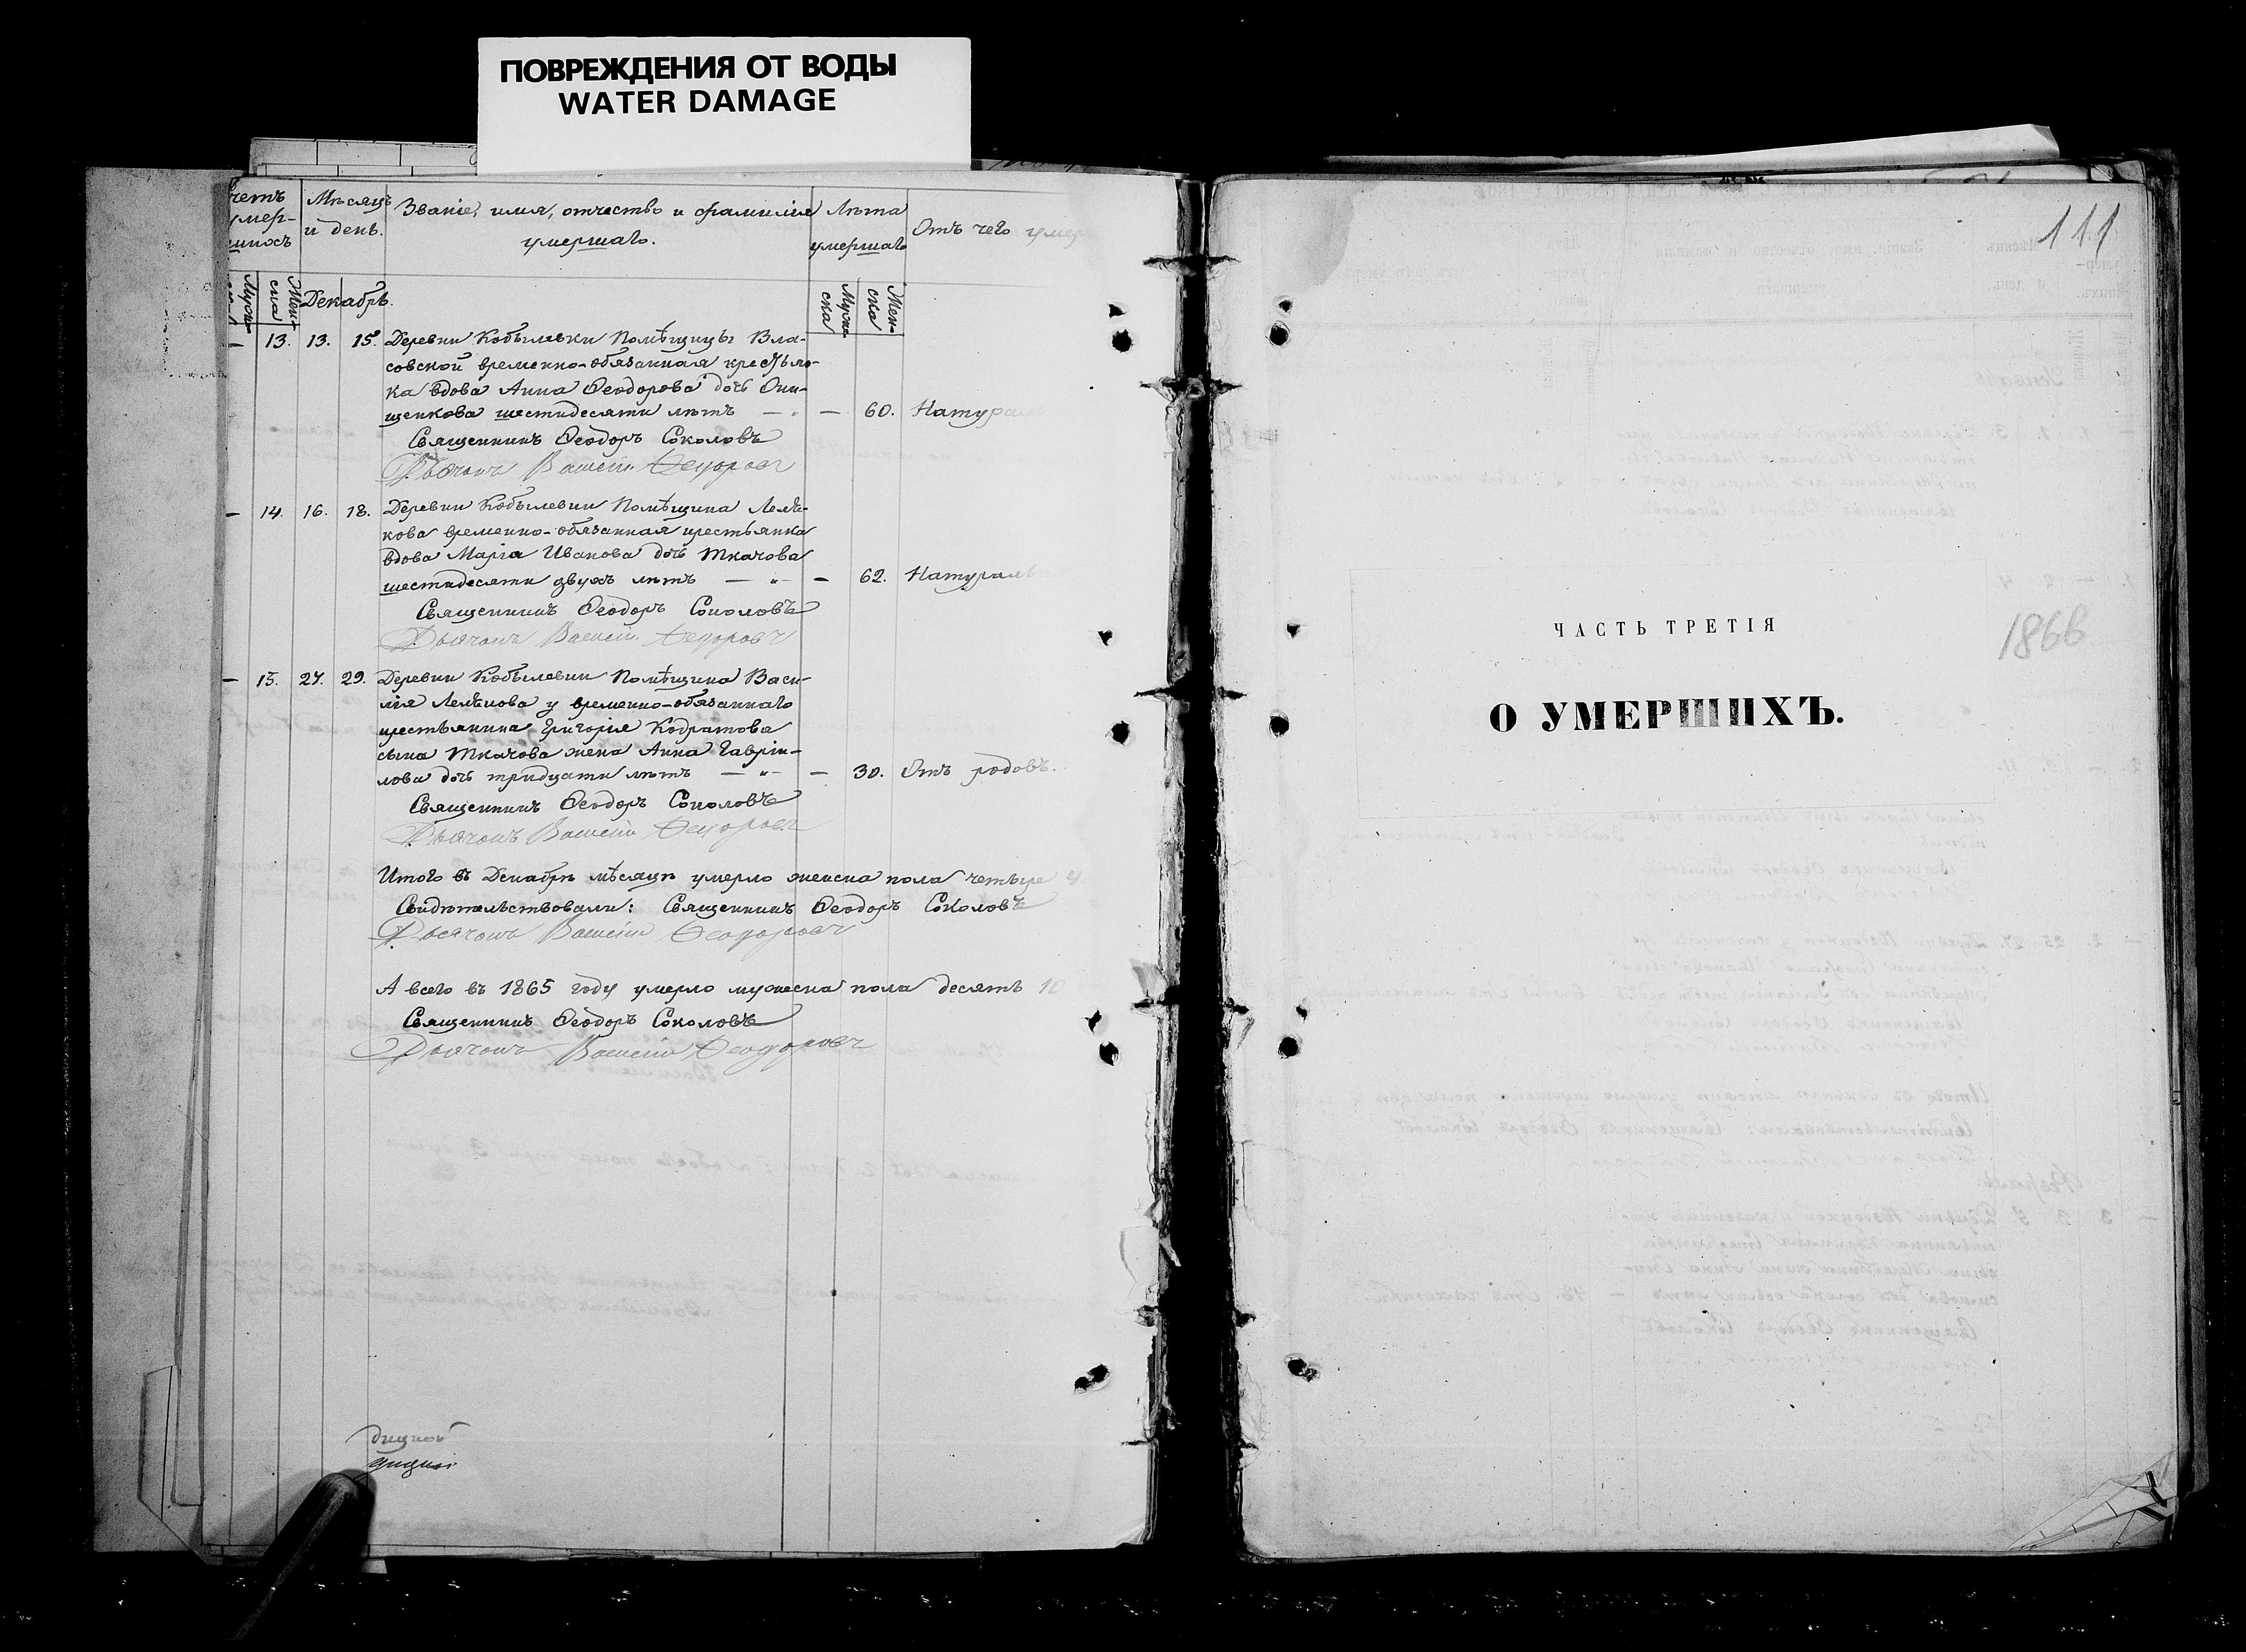 ПОВРЕЖДЕНИЯ ОТ ВОДЫ
WATER DAMAGE
четъ умер- шихъ
Мѣсяцъ и день.
Званіе, имя, отчество и фамилія умершаго.
Лѣта умершаго
Отъ чего умер
Муже- ска
Жен- ска
Декабрь.
Муже- ска
Жен- ска
— 13. 13. 15. Деревни Кобылевки Помѣщицы Вла-
совской временно-обязанная крестьян-
ка вдова Анна Ѳеодорова дочь Они-
щенкова шестидесяти лѣтъ — „ — 60. Натурал
Священникъ Ѳеодоръ Соколовъ
Дьячокъ
— 14. 16. 18. Деревни Кобылевки Помѣщика Лемя-
кова временно-обязанная крестьянка
вдова Марія Иванова дочь Ткачова
шестидесяти двухъ лѣтъ — „ — — 62. Натураль
Священникъ Ѳеодоръ Соколовъ
Дьячокъ
— 15. 27. 29. Деревни Кобылевки Помѣщика Васи-
лія у временно-обязаннаго
крестьянина Григорія Кодратова
сына Ткачова жена Анна Гаврии-
лова дочь тридцати лѣтъ — „ — — 30. Отъ родовъ.
Священникъ Ѳеодоръ Соколовъ
Дьячокъ
Итого въ Декабрѣ мѣсяцѣ умерло женска пола четыре 4.
Свидѣтельствовали: Священникъ Ѳеодоръ Соколовъ
Дьячокъ
А всего въ 1865 году умерло мужеска пола десять 10
Священникъ Ѳеодоръ Соколовъ
Дьячокъ
111
ЧАСТЬ ТРЕТІЯ
1866
О УМЕРШИХЪ.